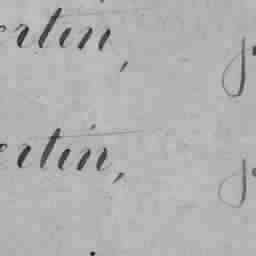 ertin,
ertin,